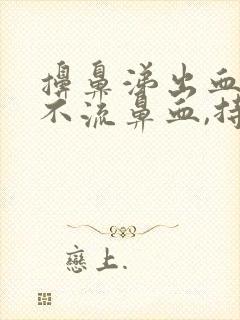 擤鼻涕出血
不流鼻血,持
戀上.